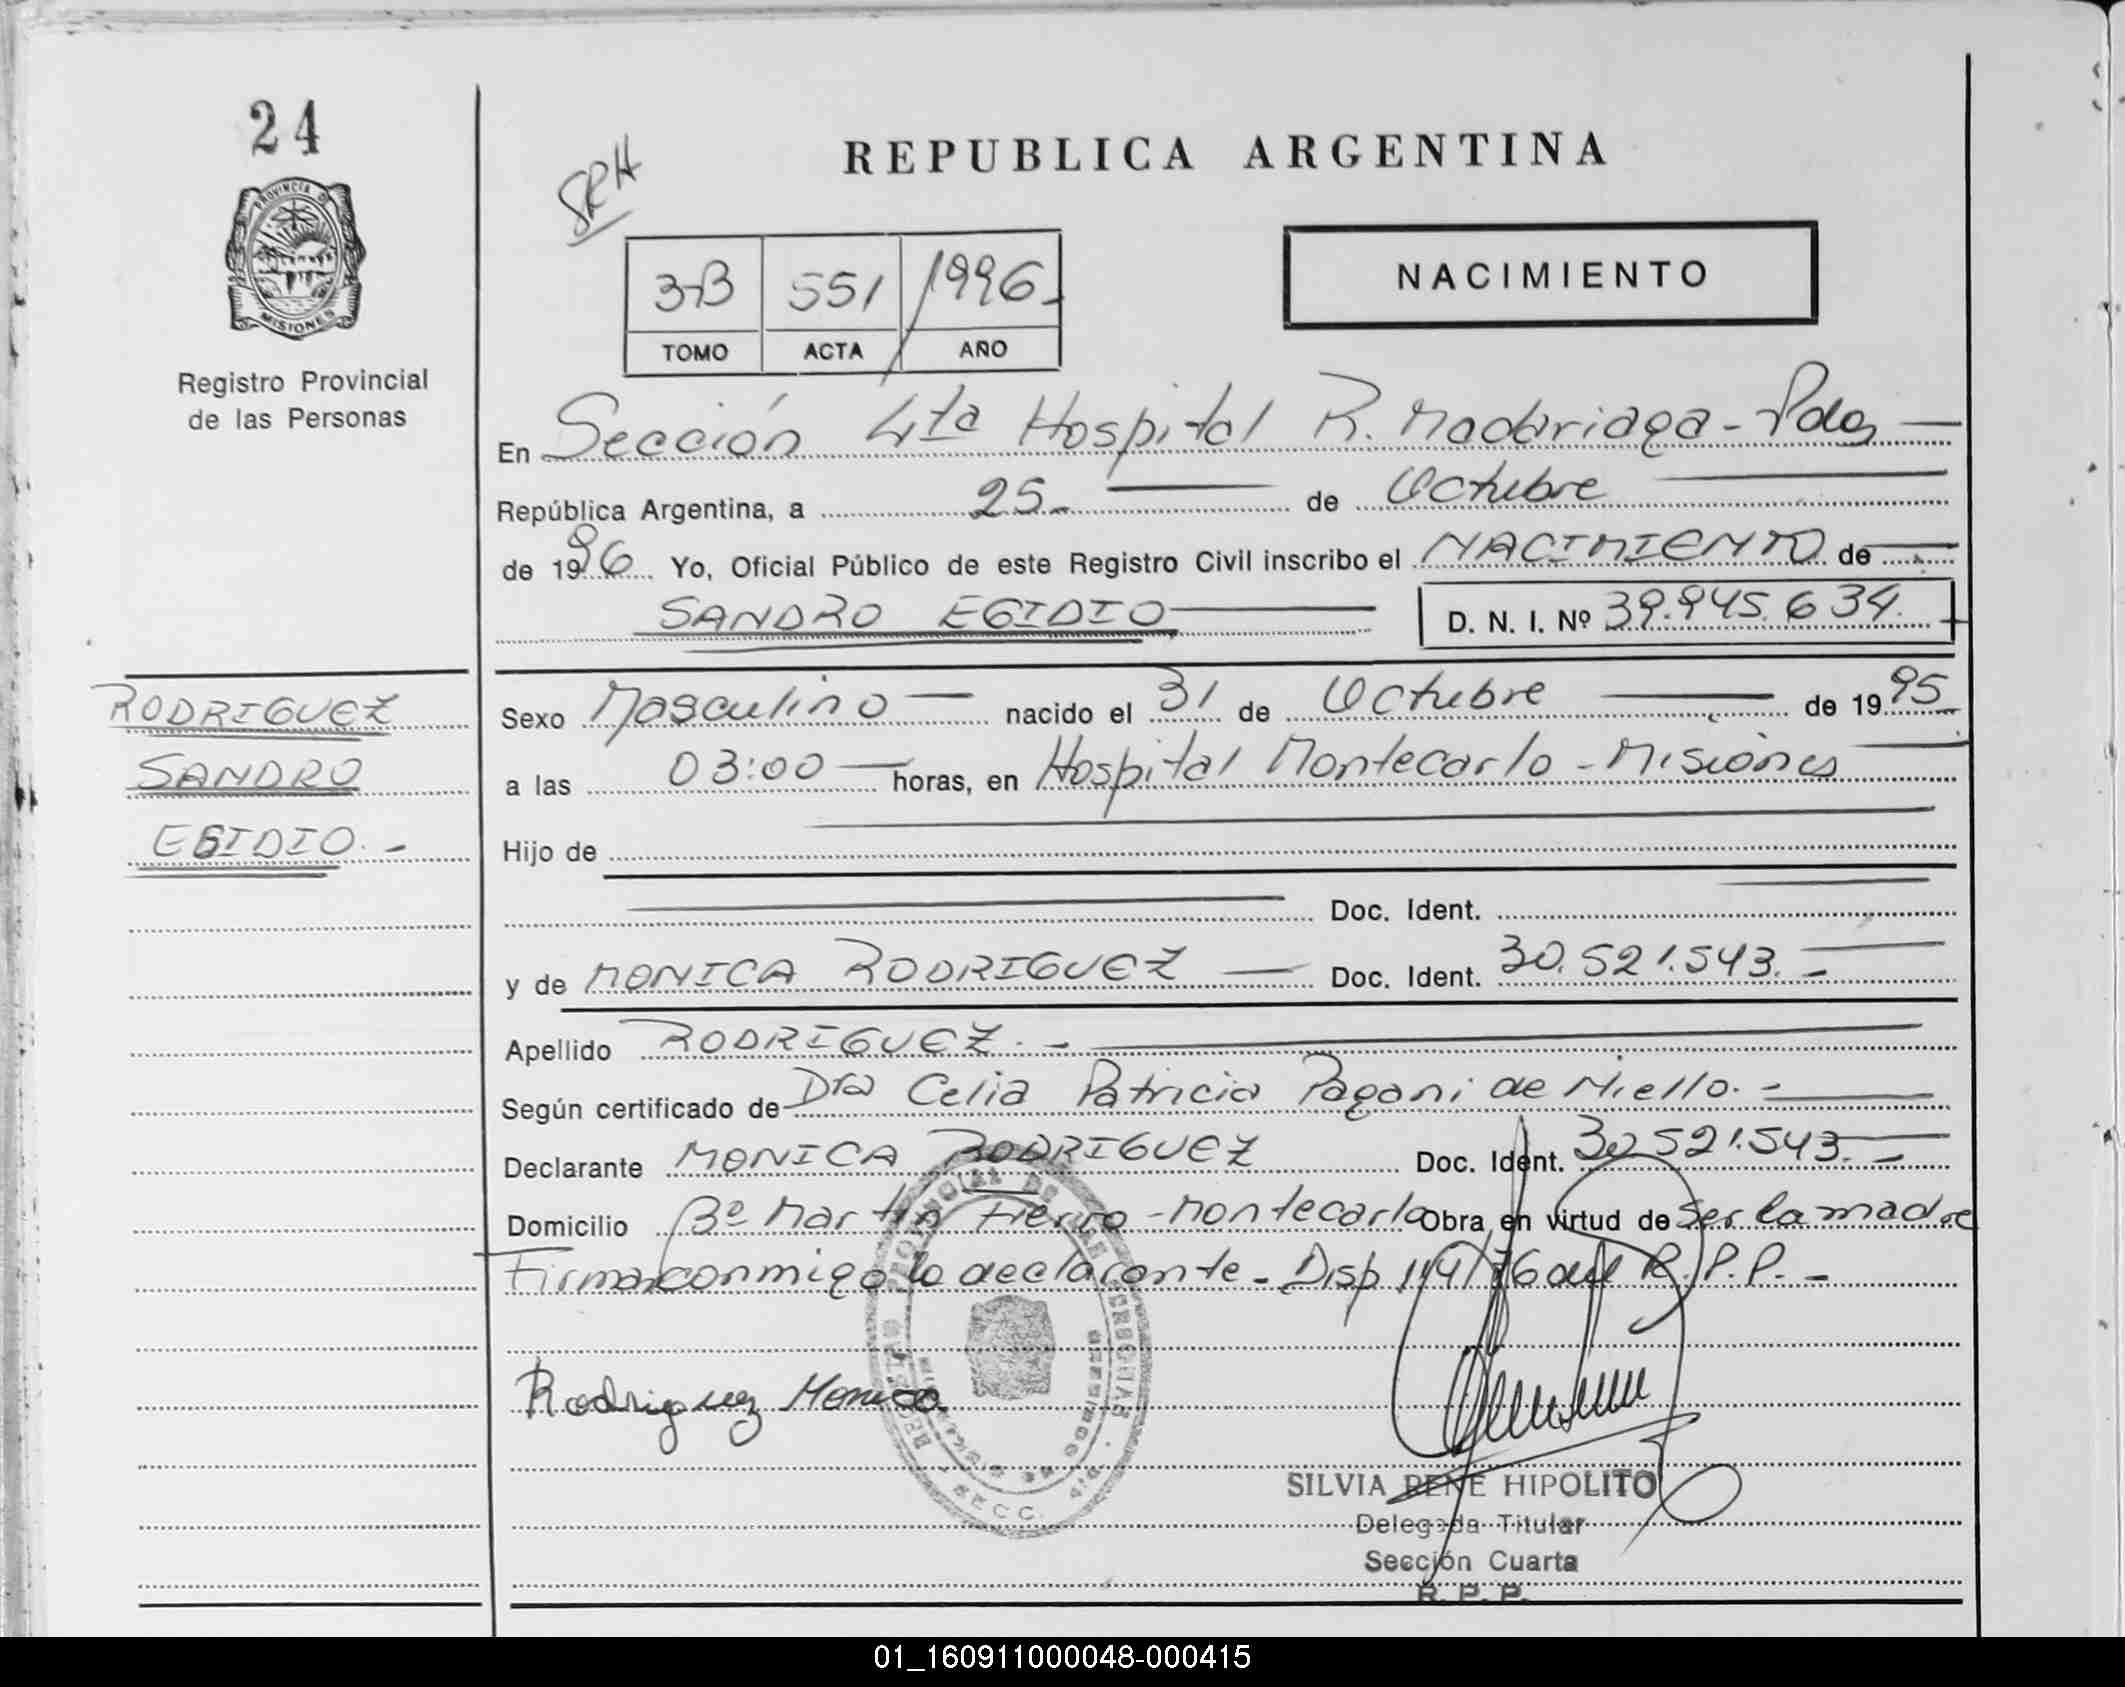 24
PROVINCIA DE
MISIONES
Registro Provincial
de las Personas
SRH
REPUBLICA ARGENTINA
3-B 551 1996
TOMO ACTA AÑO
NACIMIENTO
En Sección 4ta Hospital R. Madariaga - Pdas
República Argentina, a 25 de Octubre
de 1996 Yo, Oficial Público de este Registro Civil inscribo el NACIMIENTO de
SANDRO EGIDIO D. N. I. Nº 39.945.634.
RODRIGUEZ
SANDRO
EGIDIO.-
Sexo Masculino nacido el 31 de Octubre de 1995
a las 03:00 horas, en Hospital Montecarlo - Misiones
Hijo de
Doc. Ident.
y de MONICA RODRIGUEZ Doc. Ident. 30.521.543.-
Apellido RODRIGUEZ.-
Según certificado de Dra Celia Patricia Pagani de Miello.-
Declarante MONICA RODRIGUEZ Doc. Ident. 30.521.543.-
Domicilio Bº Martín Fierro - Montecarlo Obra en virtud de ser la madre
Firma conmigo la declarante - Disp 119/76 del R.P.P.-
Rodriguez Monica
SILVIA RENE HIPOLITO
Delegada Titular
Sección Cuarta
R. P. P.
01_160911000048-000415